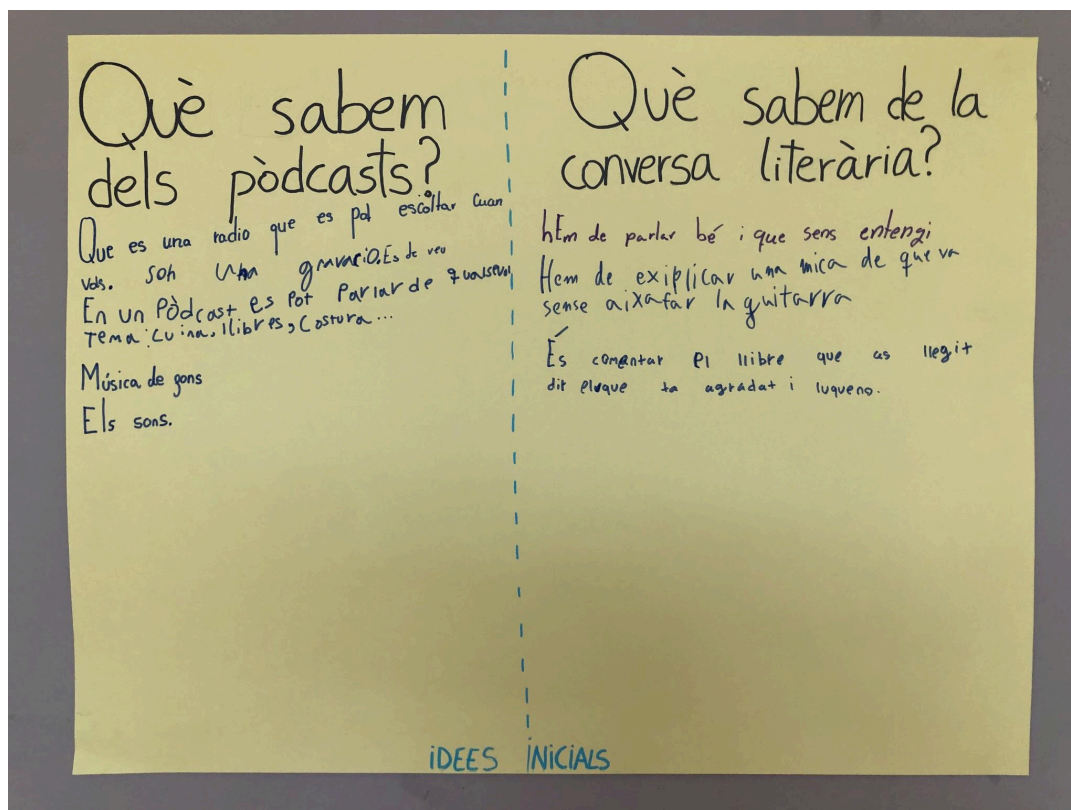 Què sabem
dels pòdcasts?
Que es una radio que es pot escoltar cuan
vols. son una gravació. És de veu
En un Pòdcast es Pot Parlar de qualsevol
Tema: cuina, llibres, costura...
Música de fons
Els sons.
Què sabem de la
conversa literària?
hEm de parlar bé i que sens entengi
Hem de exiplicar una mica de que va
sense aixafar la guitarra
És comentar el llibre que as llegit
dir eluque ta agradat i luqueno.
iDEES iNiCiALS